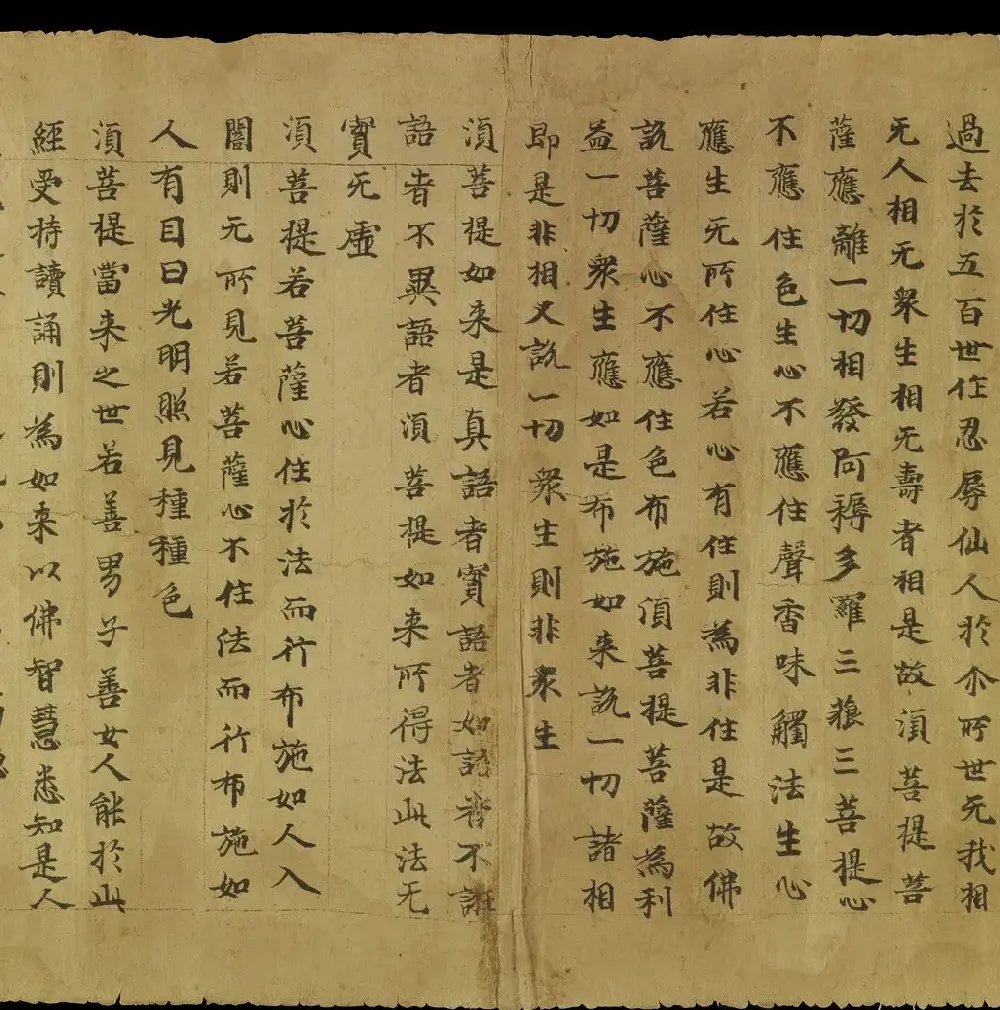 過去於五百世作忍辱仙人於尒所世无我相
无人相无衆生相无壽者相是故湏菩提菩
薩應離一切相發阿耨多羅三藐三菩提心
不應住色生心不應住聲香味觸法生心
應生无所住心若心有住則為非住是故佛
說菩薩心不應住色布施湏菩提菩薩為利
益一切衆生應如是布施如来說一切諸相
即是非相又說一切衆生則非衆生
湏菩提如来是真語者實語者如語者不誑
語者不異語者湏菩提如来所得法此法无
實无虛
湏菩提若菩薩心住於法而行布施如人入
闇則无所見若菩薩心不住法而行布施如
人有目日光明照見種種色
湏菩提當来之世若善男子善女人能於此
經受持讀誦則為如来以佛智慧悉知是人